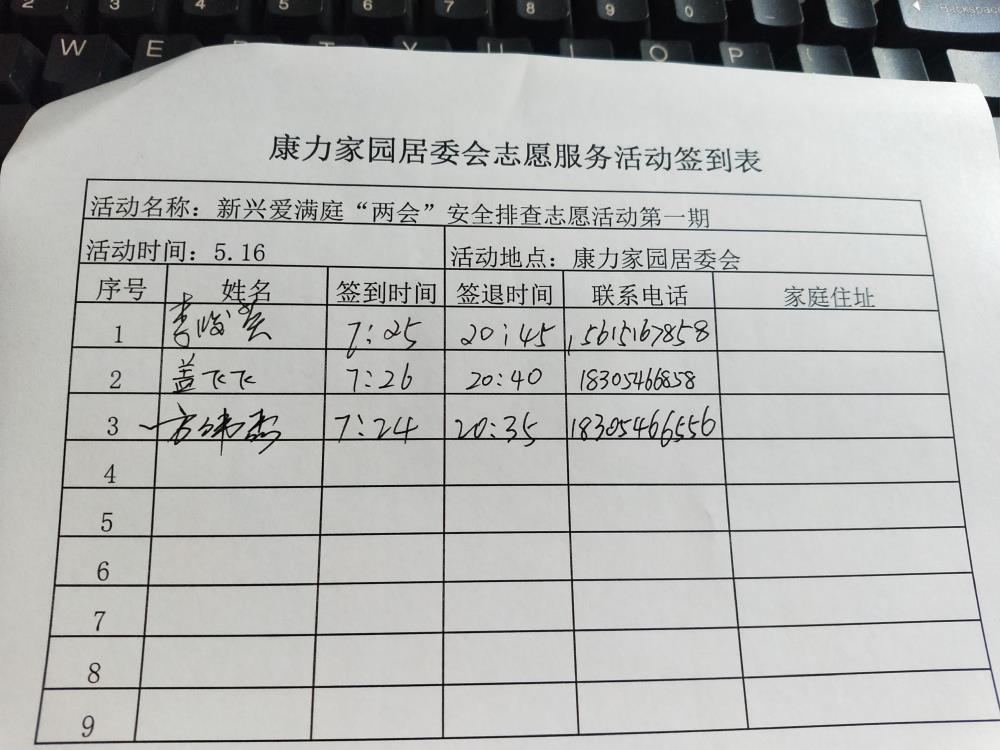 2 3 4 5 6 7 8 9 0 Backspace
W E R T Y U I O P
康力家园居委会志愿服务活动签到表
活动名称：新兴爱满庭“两会”安全排查志愿活动第一期
活动时间：5.16 活动地点：康力家园居委会
序号 姓名 签到时间 签退时间 联系电话 家庭住址
1 李 7:25 20:45 15615167858
2 盖飞飞 7:26 20:40 18305466858
3 方 7:24 20:35 18305466556
4
5
6
7
8
9